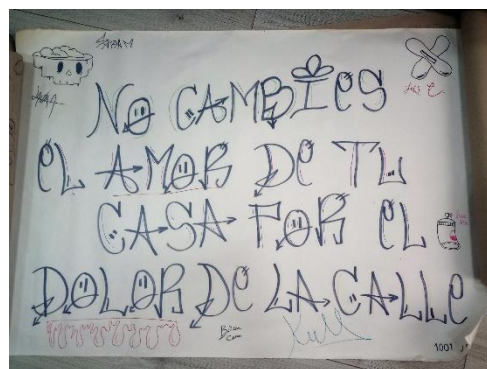 NO CAMBIES
EL AMOR DE TU
CASA POR EL
DOLOR DE LA CALLE
1001